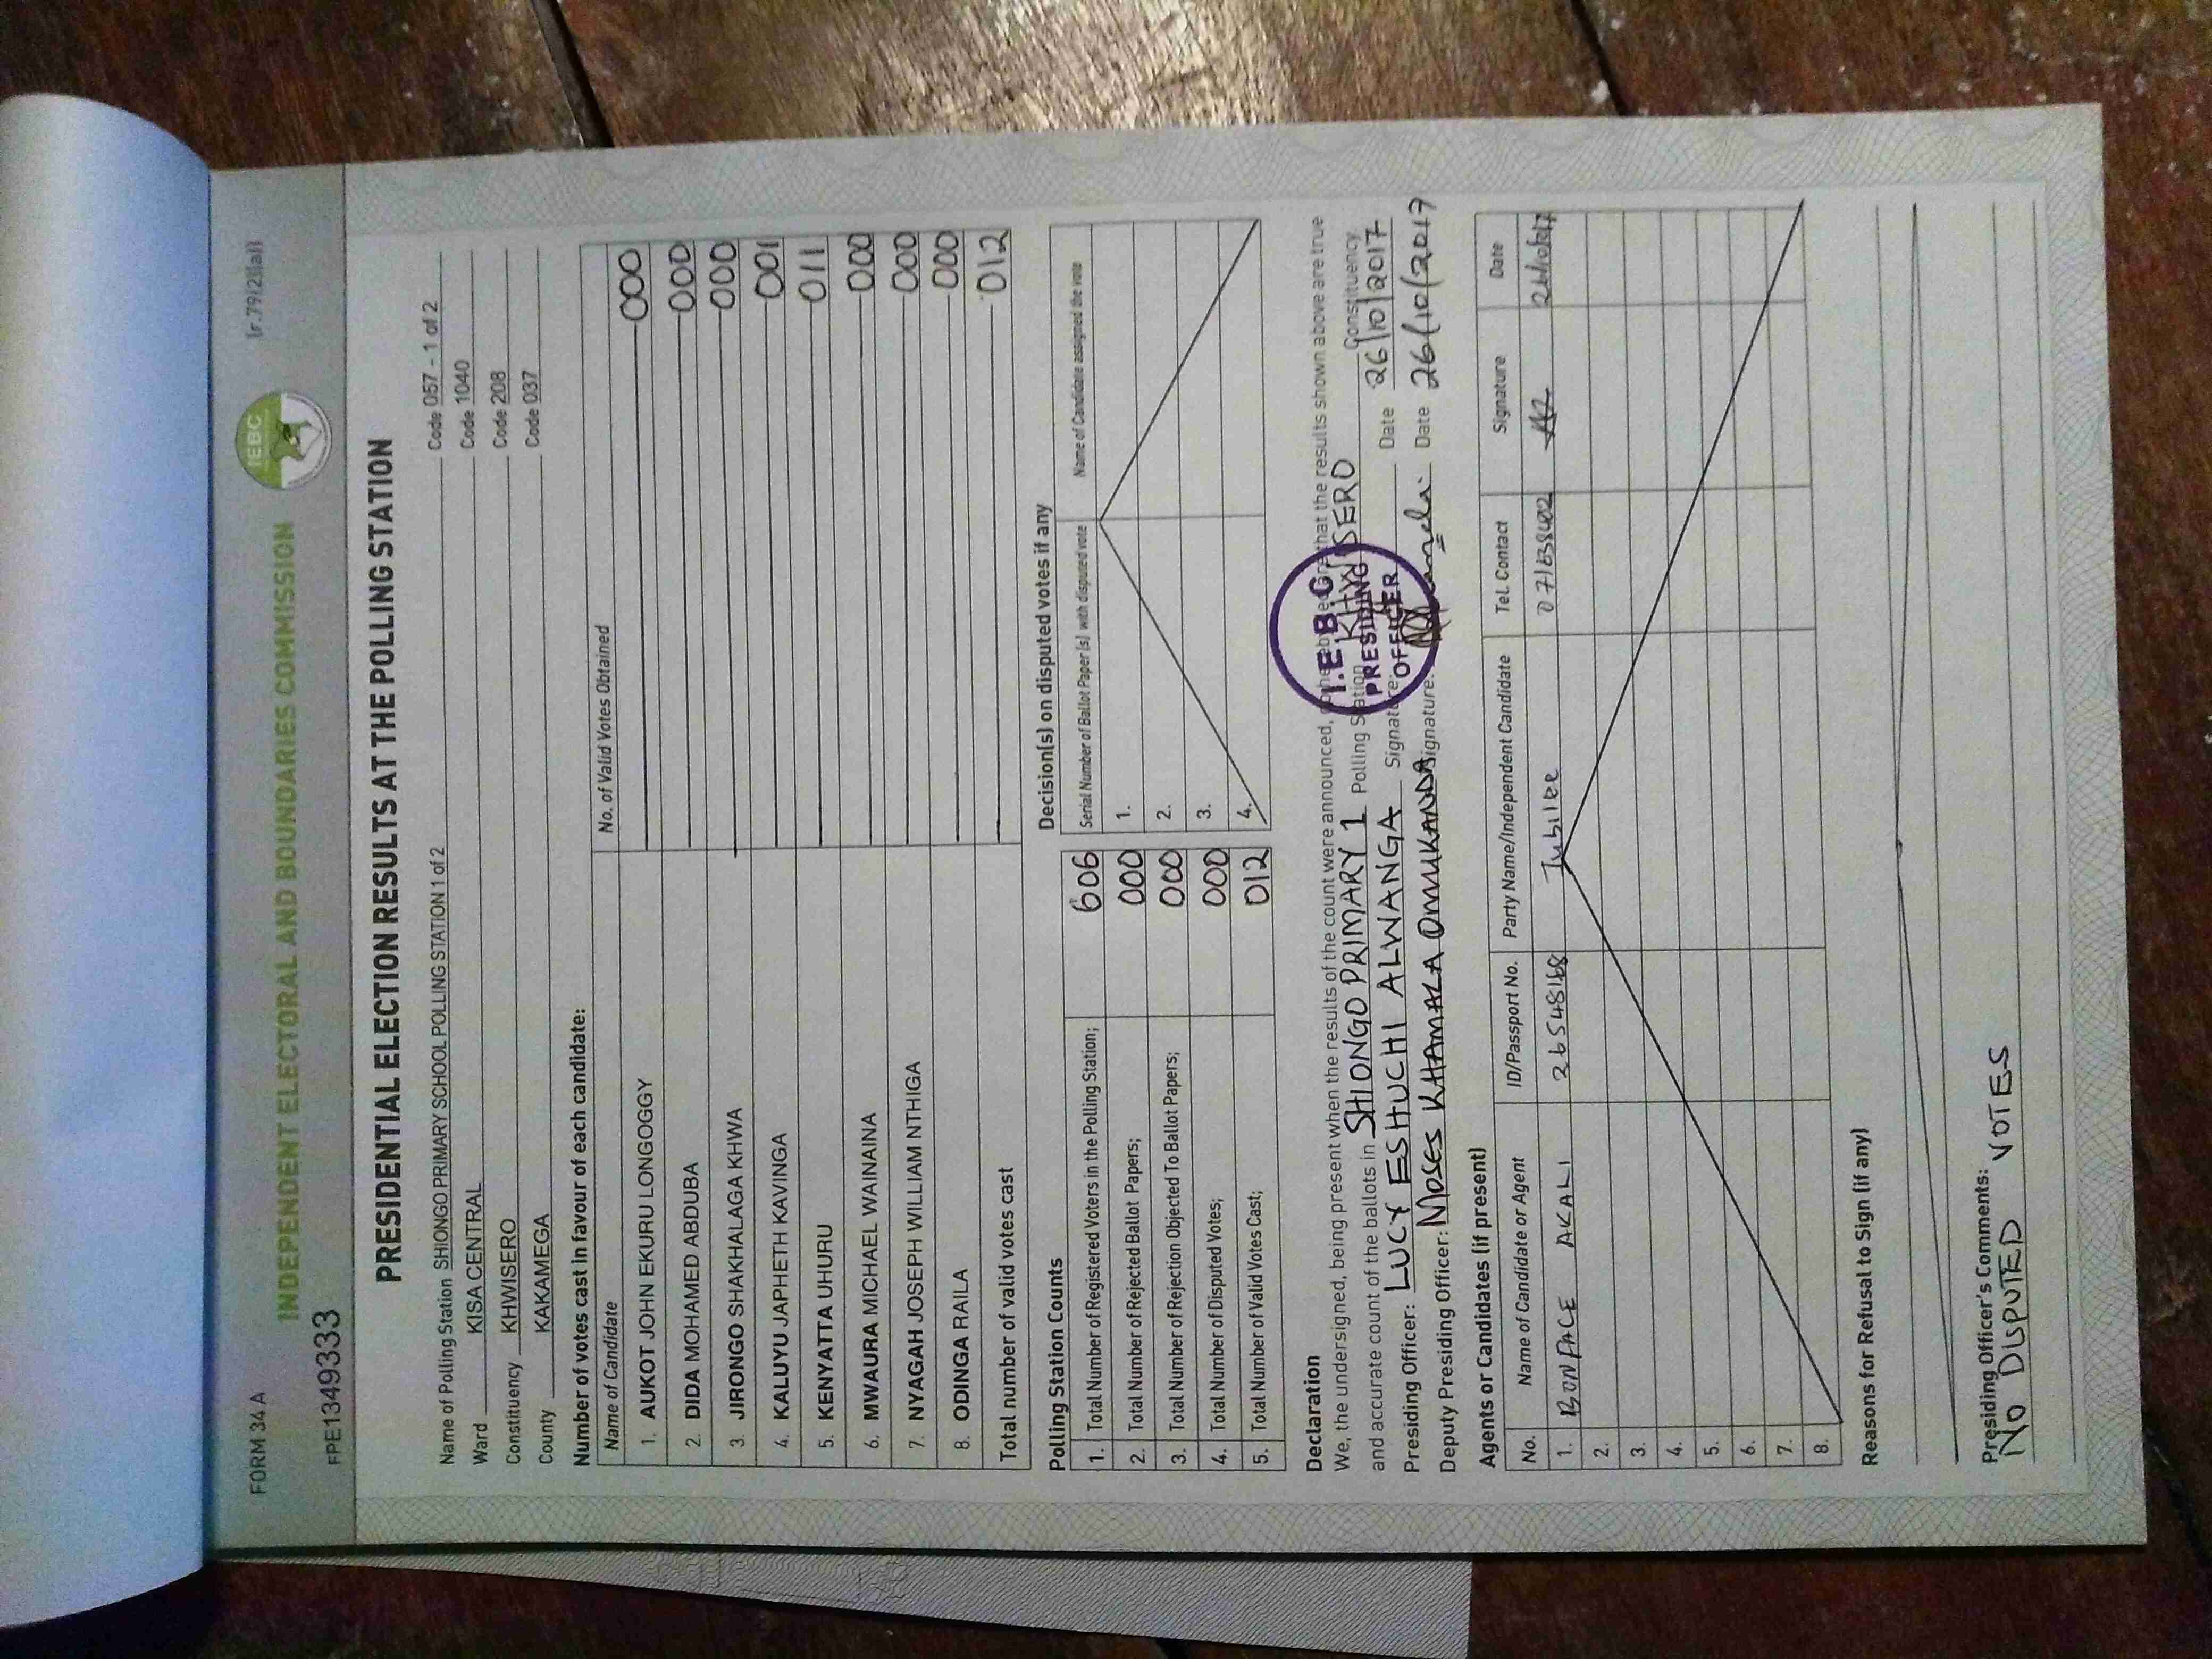 FORM 34 A
INDEPENDENT ELECTORAL AND BOUNDARIES COMMISSION
IEBC
(r.79(2)(a))
FPE1349333
PRESIDENTIAL ELECTION RESULTS AT THE POLLING STATION
Name of Polling Station SHIONGO PRIMARY SCHOOL POLLING STATION 1 of 2 Code 057 - 1 of 2
Ward KISA CENTRAL Code 1040
Constituency KHWISERO Code 208
County KAKAMEGA Code 037
Number of votes cast in favour of each candidate:
Name of Candidate No. of Valid Votes Obtained
1. AUKOT JOHN EKURU LONGOGGY 000
2. DIDA MOHAMED ABDUBA 000
3. JIRONGO SHAKHALAGA KHWA 000
4. KALUYU JAPHETH KAVINGA 001
5. KENYATTA UHURU 011
6. MWAURA MICHAEL WAINAINA 000
7. NYAGAH JOSEPH WILLIAM NTHIGA 000
8. ODINGA RAILA 000
Total number of valid votes cast 012
Polling Station Counts
1. Total Number of Registered Voters in the Polling Station; 606
2. Total Number of Rejected Ballot Papers; 000
3. Total Number of Rejection Objected To Ballot Papers; 000
4. Total Number of Disputed Votes; 000
5. Total Number of Valid Votes Cast; 012
Decision(s) on disputed votes if any
Serial Number of Ballot Paper (s) with disputed vote Name of Candidate assigned the vote
1.
2.
3.
4.
Declaration
We, the undersigned, being present when the results of the count were announced, that the results shown above are true
and accurate count of the ballots in SHIONGO PRIMARY 1 Polling Station KHWISERO Constituency
Presiding Officer: LUCY ESHUCHI ALWANGA Signature. Date 26/10/2017
Deputy Presiding Officer: MOSES KHAMALA OMUKANDA Signature. Date 26/10/2017
I.E.B.C
PRESIDING
OFFICER
Agents or Candidates (if present)
No. Name of Candidate or Agent ID/Passport No. Party Name/Independent Candidate Tel. Contact Signature Date
1. BONFACE AKALI 26548168 Jubilee
2.
3.
4.
5.
6.
7.
8.
Reasons for Refusal to Sign (if any)
Presiding Officer's Comments:
NO DISPUTED VOTES